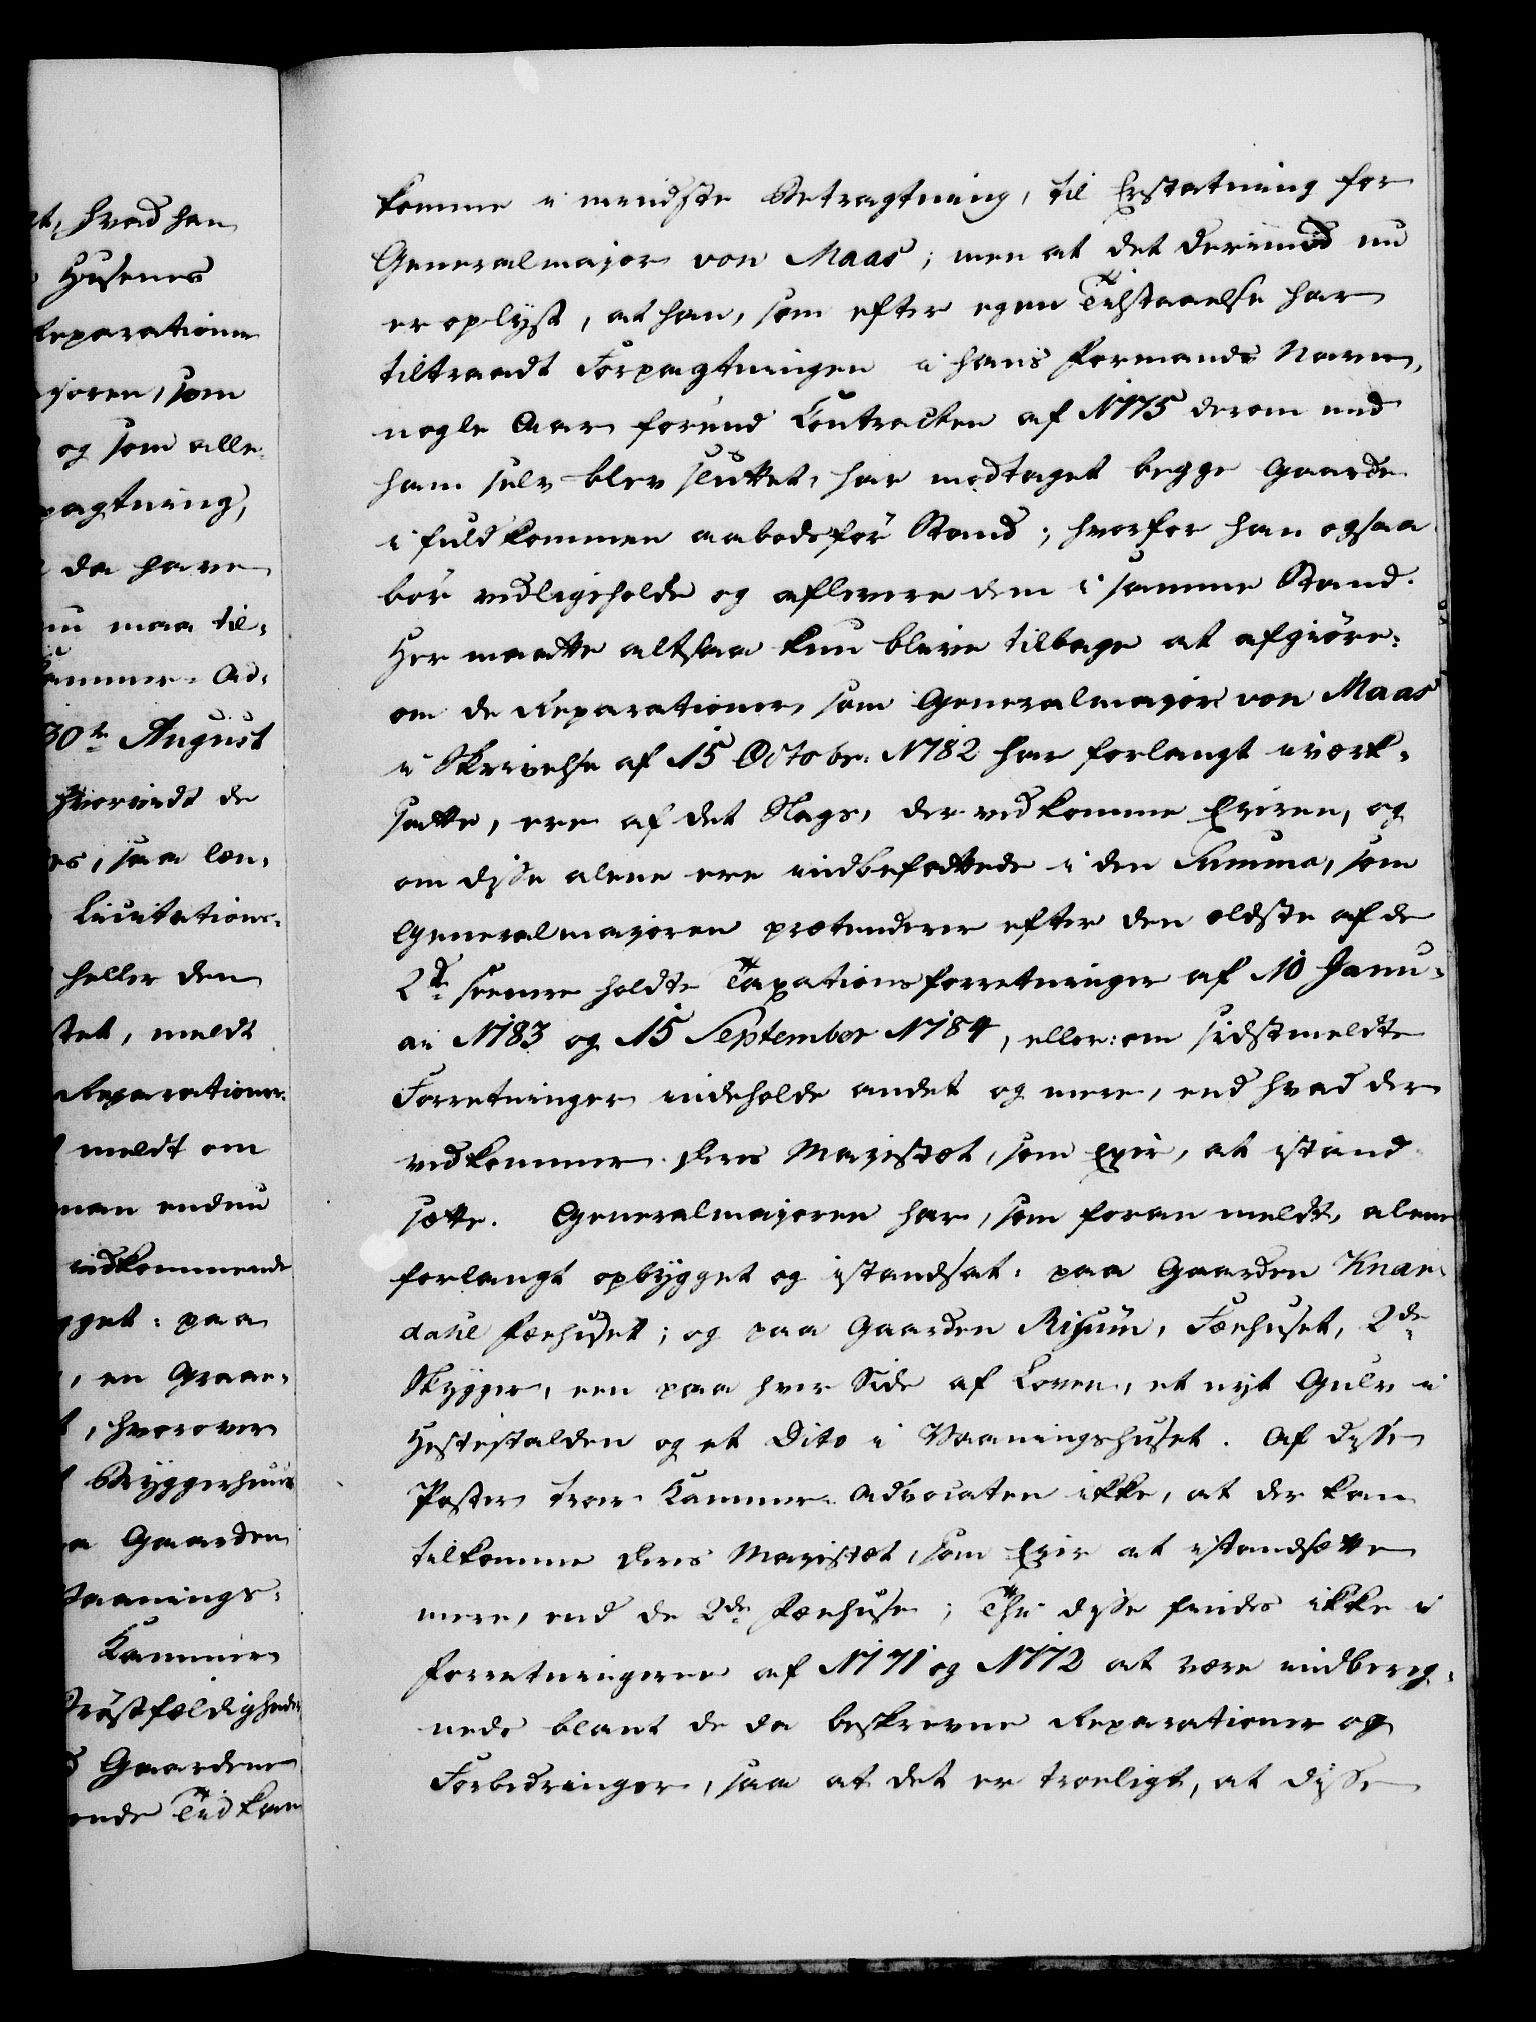 at, hvad han
Husenes
Reparationer
joren, som
og som alle
pagtning,
da have
nu maa til-
Kammer-Ad-
30te August
hvorvidt de
es, saa læn-
Licitations-
heller den
tet, meldt
Reparationer
meldt om
man endnu
vedkommende
gget: paa
, en Graae-
t, hvorover
Bryggerhuus
a Gaarden
Vaanings-
Kammer
Brøstfældigheder
Gaardene
ende Tid kan
komme i mindste Betragtning, til Erstatning for
Generalmajor von Maas; men at det derimod nu
er oplyst, at han, som efter egen Tilstaaelse har
tiltraadt Forpagtningen i hans Formands Navn,
nogle Aar førend Contracten af 1775 derom med
ham selv blev sluttet, har modtaget begge Gaarde
i fuldkommen aabodsför Stand; hvorfor han ogsaa
bör vedligeholde og aflevere dem i samme Stand.
Her maatte altsaa kun blive tilbage at afgiöre:
om de Reparationer, som Generalmajor von Maas
i Skrivelse af 15 Octobr. 1782 har forlangt iværk-
satte, ere af det Slags, der vedkomme Eieren, og
om disse alene ere indbefattede i den Summa, som
Generalmajoren prætenderer efter den ældste af de
2de seenere holdte Taxationsforretninger af 10 Janu-
ari 1783 og 15 September 1784, eller: om sidstmeldte
Forretninger indeholde andet og mere, end hvad der
vedkommer Deres Majestæt, som Eyer, at istand-
sætte. Generalmajoren har, som foran meldt, alene
forlangt opbygget og istandsat: paa Gaarden Knar-
dahl Fæehuset; og paa Gaarden Risum, Fæehuset, 2de
Skygger, een paa hver Side af Loven, et nyt Gulv i
Hestestalden og et Dito i Vaaningshuset. Af disse
Poster troer Kammer-Advocaten ikke, at der kan
tilkomme Deres Majestæt, som Eyer at istandsætte
mere, end de 2de Fæehuse; Thi disse findes ikke i
Forretningerne af 1771 og 1772 at være indbereg-
nede blant de da beskrevne Reparationer og
Forbedringer, saa at det er troeligt, at disse